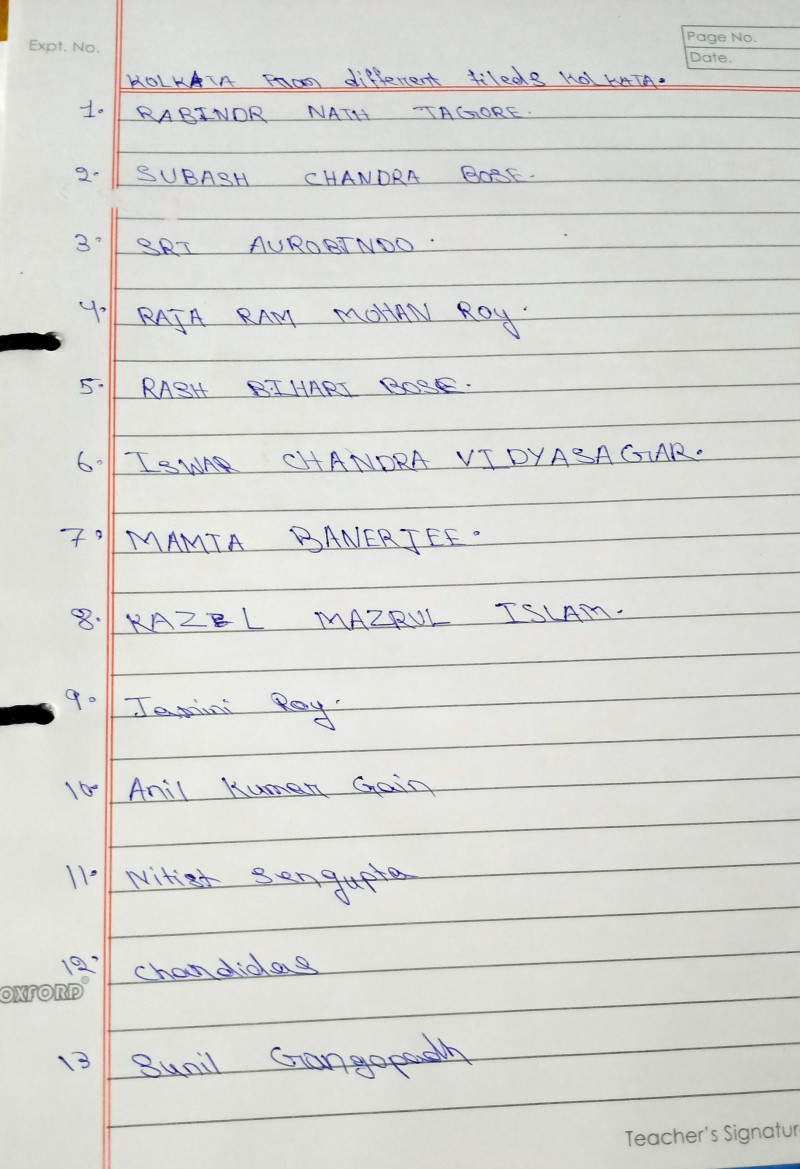 Expt. No.
Page No.
Date.
KOLKATA From different fileds KOLKATA.
1. RABINDR NATH TAGORE.
2. SUBASH CHANDRA BOSE.
3. SRI AUROBINDO.
4. RAJA RAM MOHAN Roy.
5. RASH BIHARI BOSE.
6. ISWAR CHANDRA VIDYASAGAR.
7. MAMTA BANERJEE.
8. KAZEL MAZRUL ISLAM.
9. Jamini Roy.
10. Anil Kumar Gain
11. Nitist Sengupta
12. Chandidas
OXFORD
13 Sunil Gangopadh
Teacher's Signatur